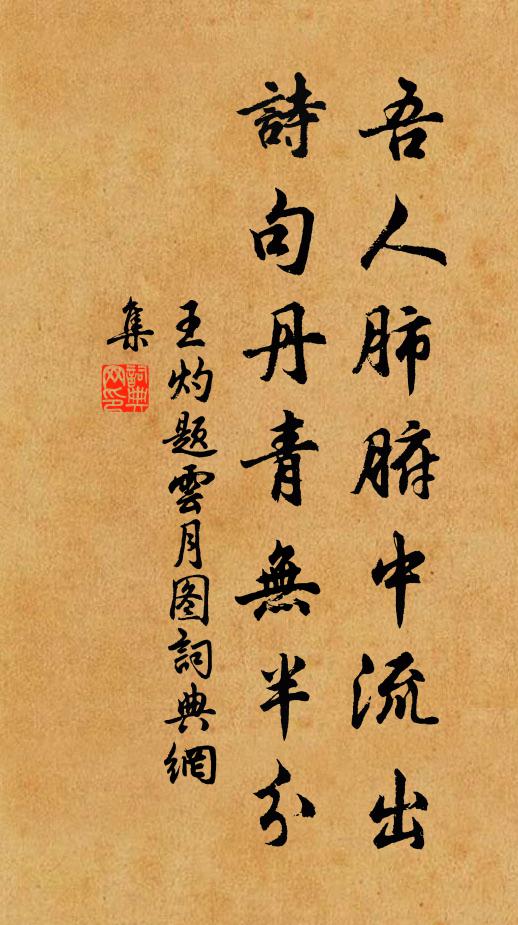 吾人肺腑中流出
詩句丹青無半分
王灼題雲月图詞典網
集
詞典網印